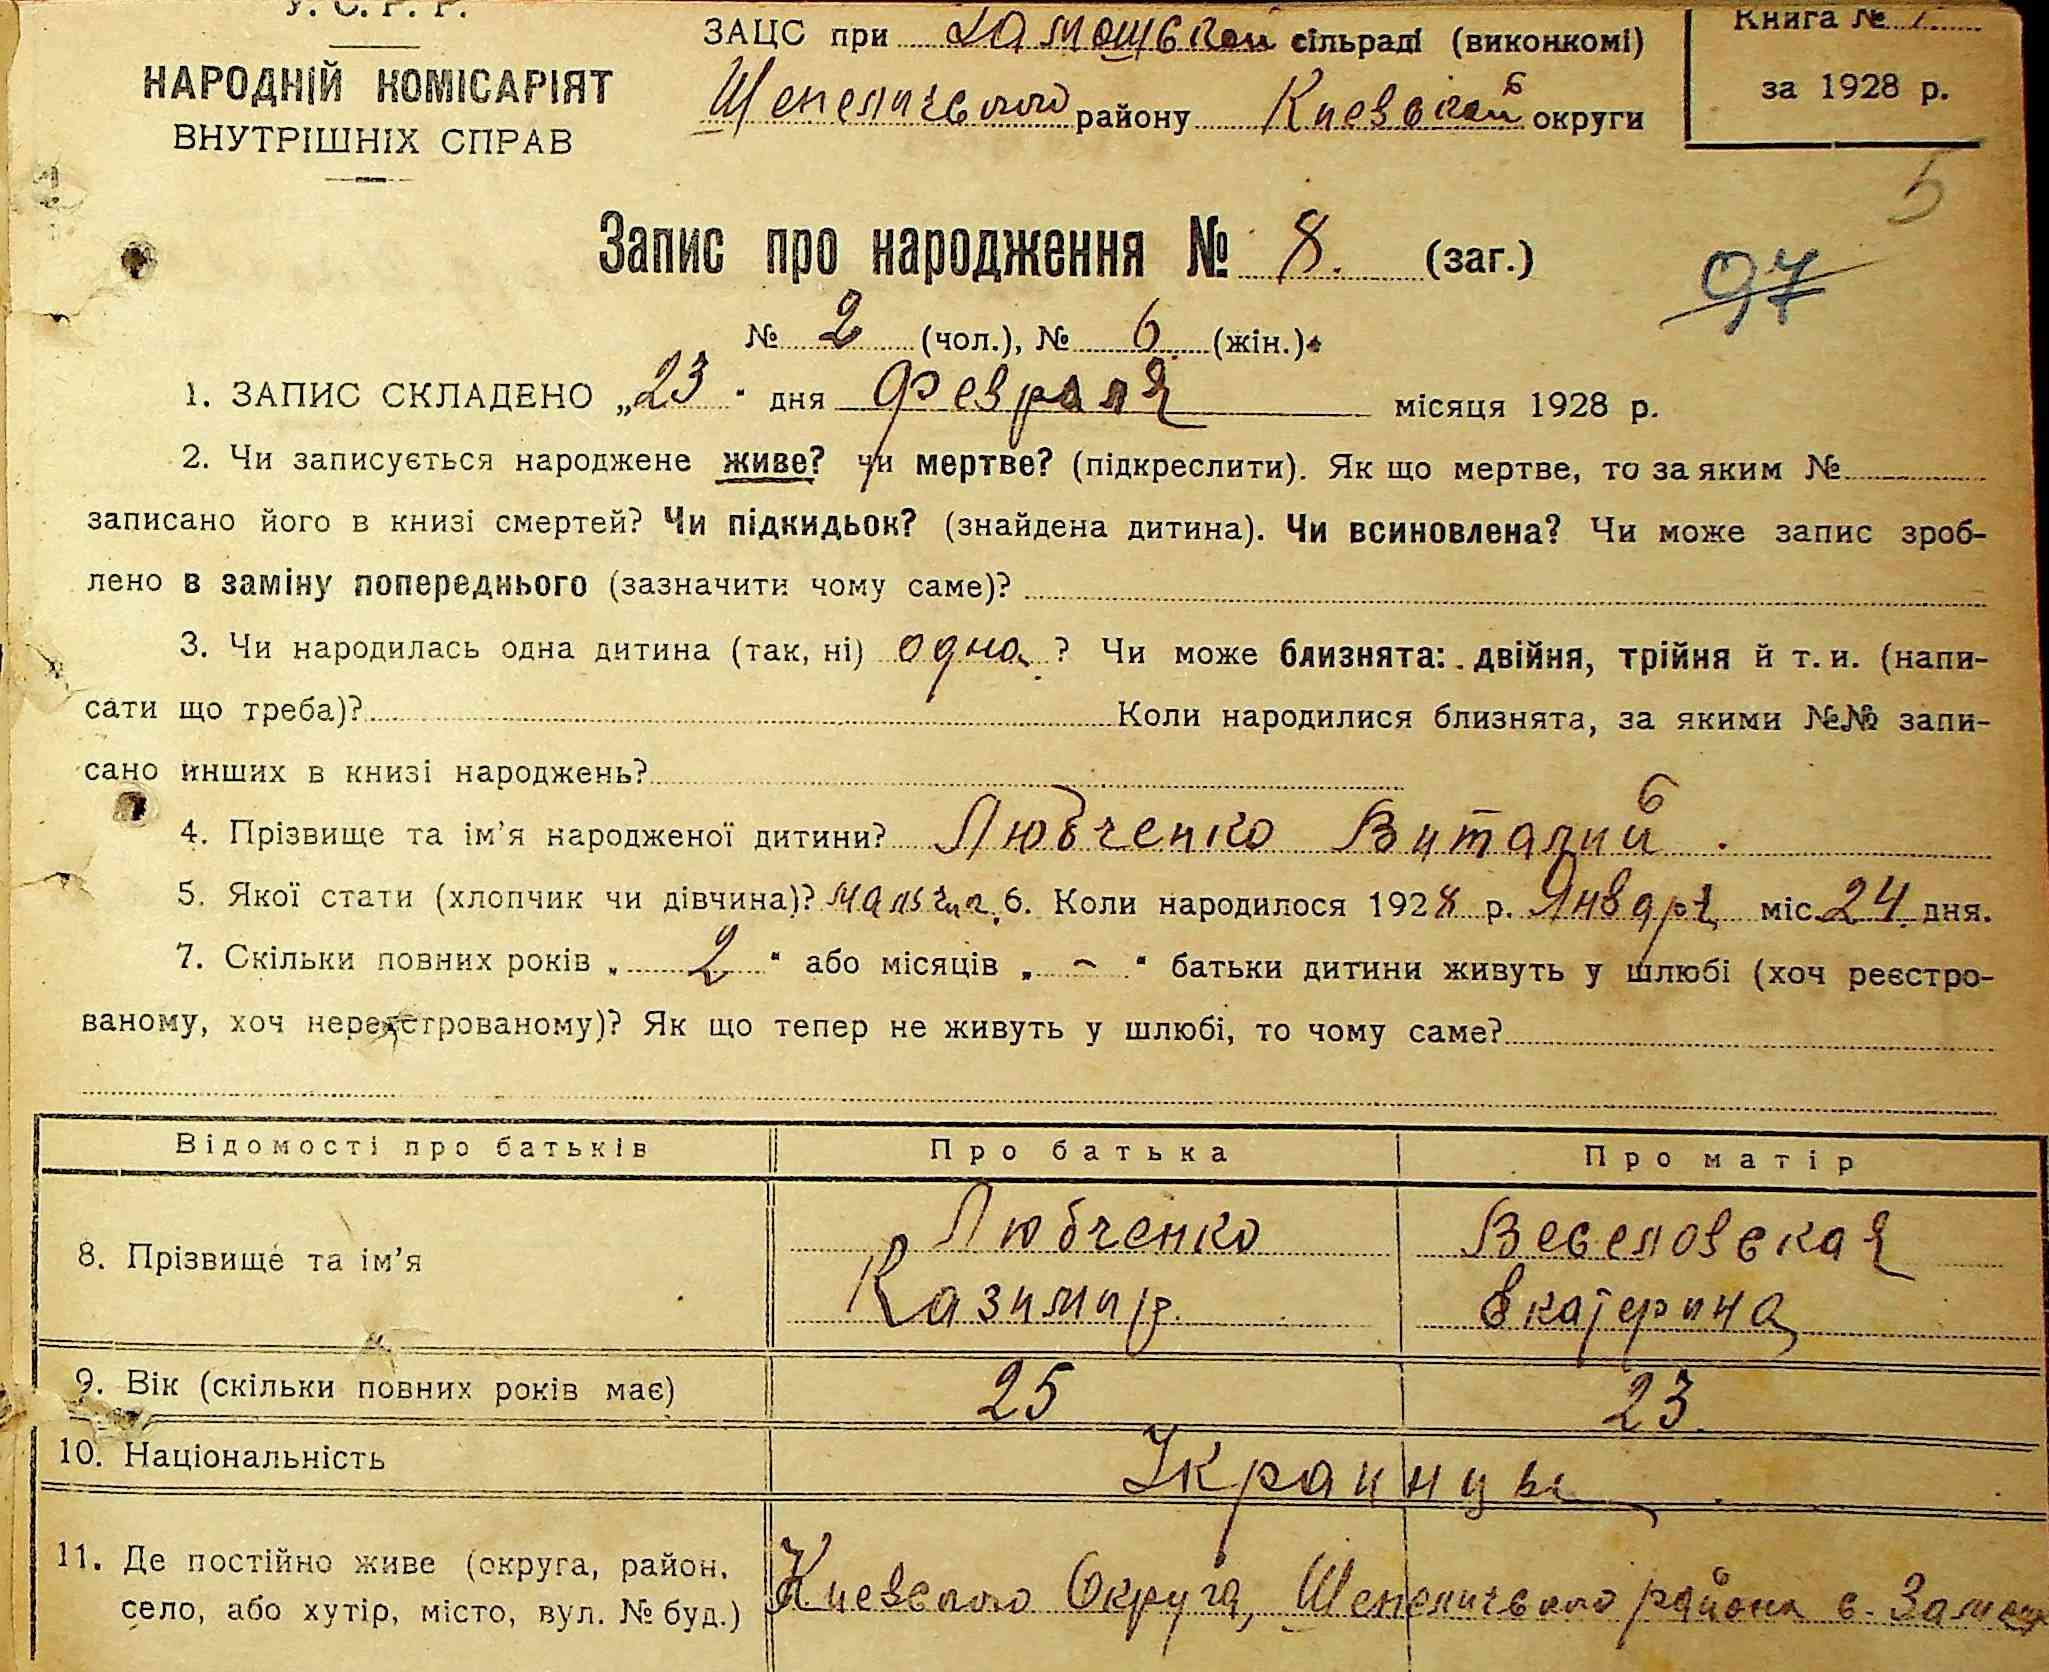 У. С. Р. Р.
НАРОДНІЙ КОМІСАРІЯТ
ВНУТРІШНІХ СПРАВ
ЗАЦС при Замошской сільраді (виконкомі)
Шепеличского району Киевской округи
Книга № 1
за 1928 р.
5
97
Запис про народження № 8. (заг.)
№ 2 (чол.), № 6 (жін.)
1. ЗАПИС СКЛАДЕНО „23" дня Февраля місяця 1928 р.
2. Чи записується народжене живе? чи мертве? (підкреслити). Як що мертве, то за яким №
записано його в книзі смертей? Чи підкидьок? (знайдена дитина). Чи всиновлена? Чи може запис зроб-
лено в заміну попереднього (зазначити чому саме)?
3. Чи народилась одна дитина (так, ні) одна ? Чи може близнята: двійня, трійня й т. и. (напи-
сати що треба)? Коли народилися близнята, за якими №№ запи-
сано инших в книзі народжень?
4. Прізвище та ім'я народженої дитини? Любченко Виталий.
5. Якої стати (хлопчик чи дівчина)? мальчик. 6. Коли народилося 1928 р. Января міс. 24. дня.
7. Скільки повних років „ 2 " або місяців „ - " батьки дитини живуть у шлюбі (хоч реєстро-
ваному, хоч нереєстрованому)? Як що тепер не живуть у шлюбі, то чому саме?
Відомості про батьків Про батька Про матір
8. Прізвище та ім'я Любченко Веселовская
Казимир. Екатерина
9. Вік (скільки повних років має) 25 23.
10. Національність Украинцы
11. Де постійно живе (округа, район,
село, або хутір, місто, вул. № буд.) Киевского Округа, Шепеличского района с.